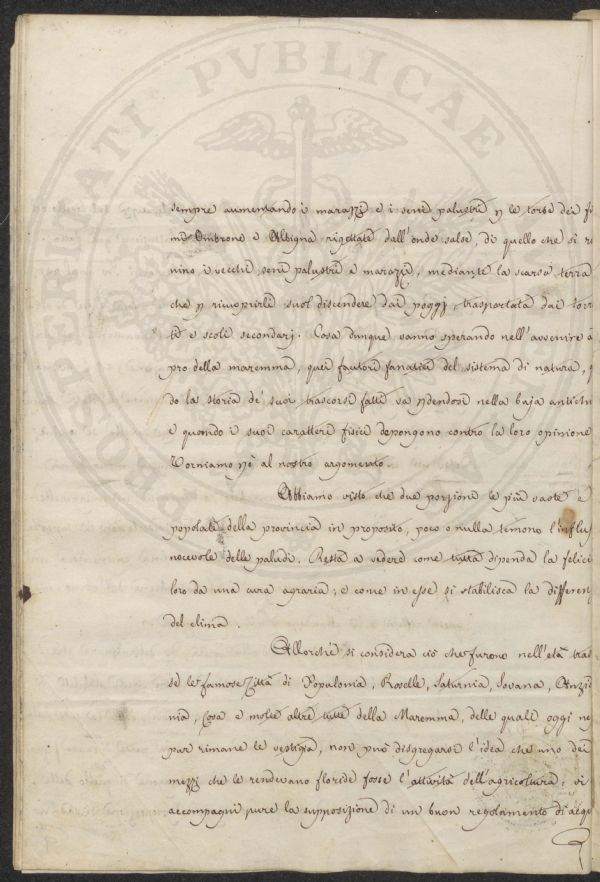 sempre aumentando i marazzi e i seni palustri p le torbe dei fi
mi Ombrone e Albegna rigettate dall'onde salse, di quello che si r
nino i vecchi seni palustri e marazzi, mediante la scarsa terra
che p ricuoprirli suol discendere dai poggj, trasportata dai torr
ti e scoli secondarj. Cosa dunque vanno sperando nell'avvenire a
pro della maremma, quei fautori fanatici del sistema di natura, q
do la storia de' suoi trascorsi fatti va pdendosi nella buja antichi
e quando i suoi caratteri fisici depongono contro la loro opinione
Torniamo pò al nostro argomento.
Abbiamo visto che due porzioni le più vaste e
popolate della provincia in proposito, poco o nulla temono l'influs
nocevole delle paludi. Resta a vedere come tutta dipenda la felici
loro da una cura agraria, e come in esse si stabilisca la differen
del clima.
Allorchè si considera ciò che furono nell'età tras
se le famose Città di Populonia, Roselle, Saturnia, Sovana, Anzi
nia, Cosa e molte altre tutte della Maremma, delle quali oggi ne
pur rimane le vestigia, non può disgregarsi l'idea che uno dei
mezzi che le rendevano floride fosse l'attività dell'agricoltura; vi
accompagni pure la supposizione di un buon regolamento di acqu
PROTEPERMATI PVBLICAE